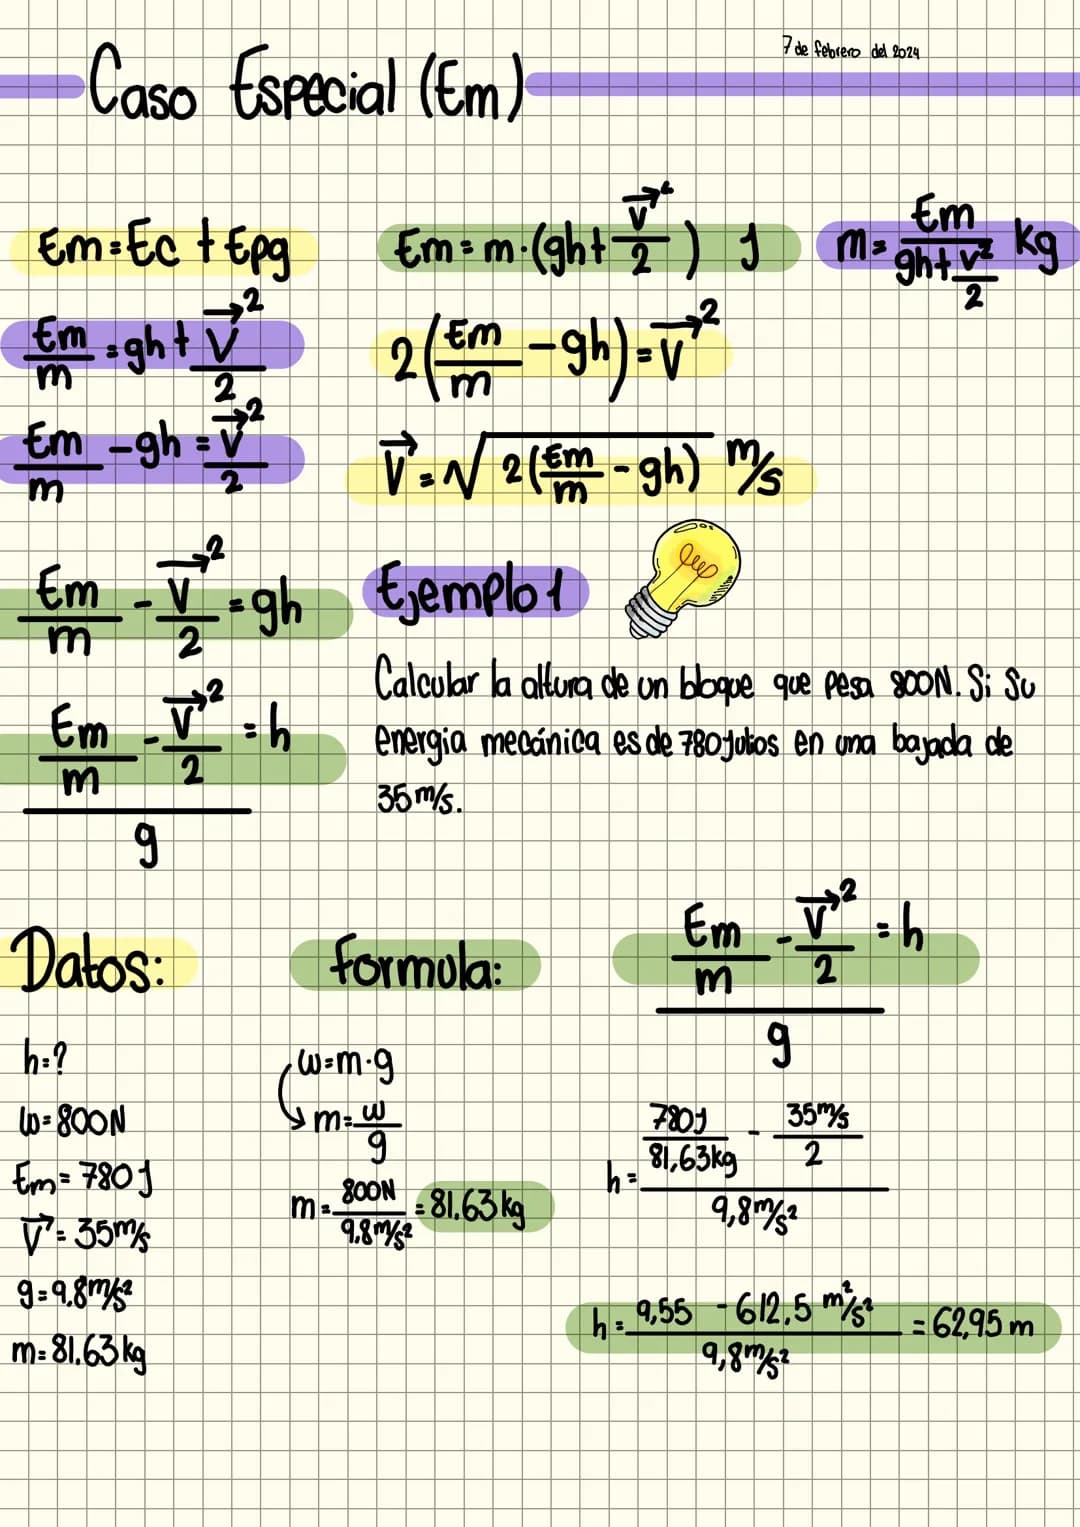 7 de febrero del 2024
Caso Especial (Em)
Em = Ec + Epg
Em/m = gh + v⃗²/2
Em/m - gh = v⃗²/2
Em/m - v⃗²/2 = gh
(Em/m - v⃗²/2)/g = h
Em = m·(gh + v⃗²/2) J
2(Em/m - gh) = v⃗²
v⃗ = √2(Em/m - gh) m/s
m = Em/(gh + v²/2) kg
Ejemplo 1
Calcular la altura de un bloque que pesa 800N. Si Su
energia mecánica es de 780 julios en una bajada de
35 m/s.
Datos:
h=?
W=800N
Em=780 J
V⃗=35m/s
g=9,8m/s²
m=81,63 kg
formula:
W=m·g
m=w/g
m=800N/9,8m/s² = 81,63 kg
(Em/m - v⃗²/2)/g = h
h=(780J/81,63kg - 35m/s/2)/9,8m/s²
h=(9,55 - 612,5 m²/s²)/9,8m/s² = 62,95 m